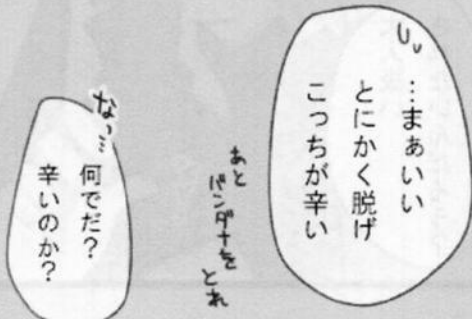 …まぁいい
とにかく脱げ
こっちが辛い
あと
バンダナを
とれ
なっ…
何でだ?
辛いのか?